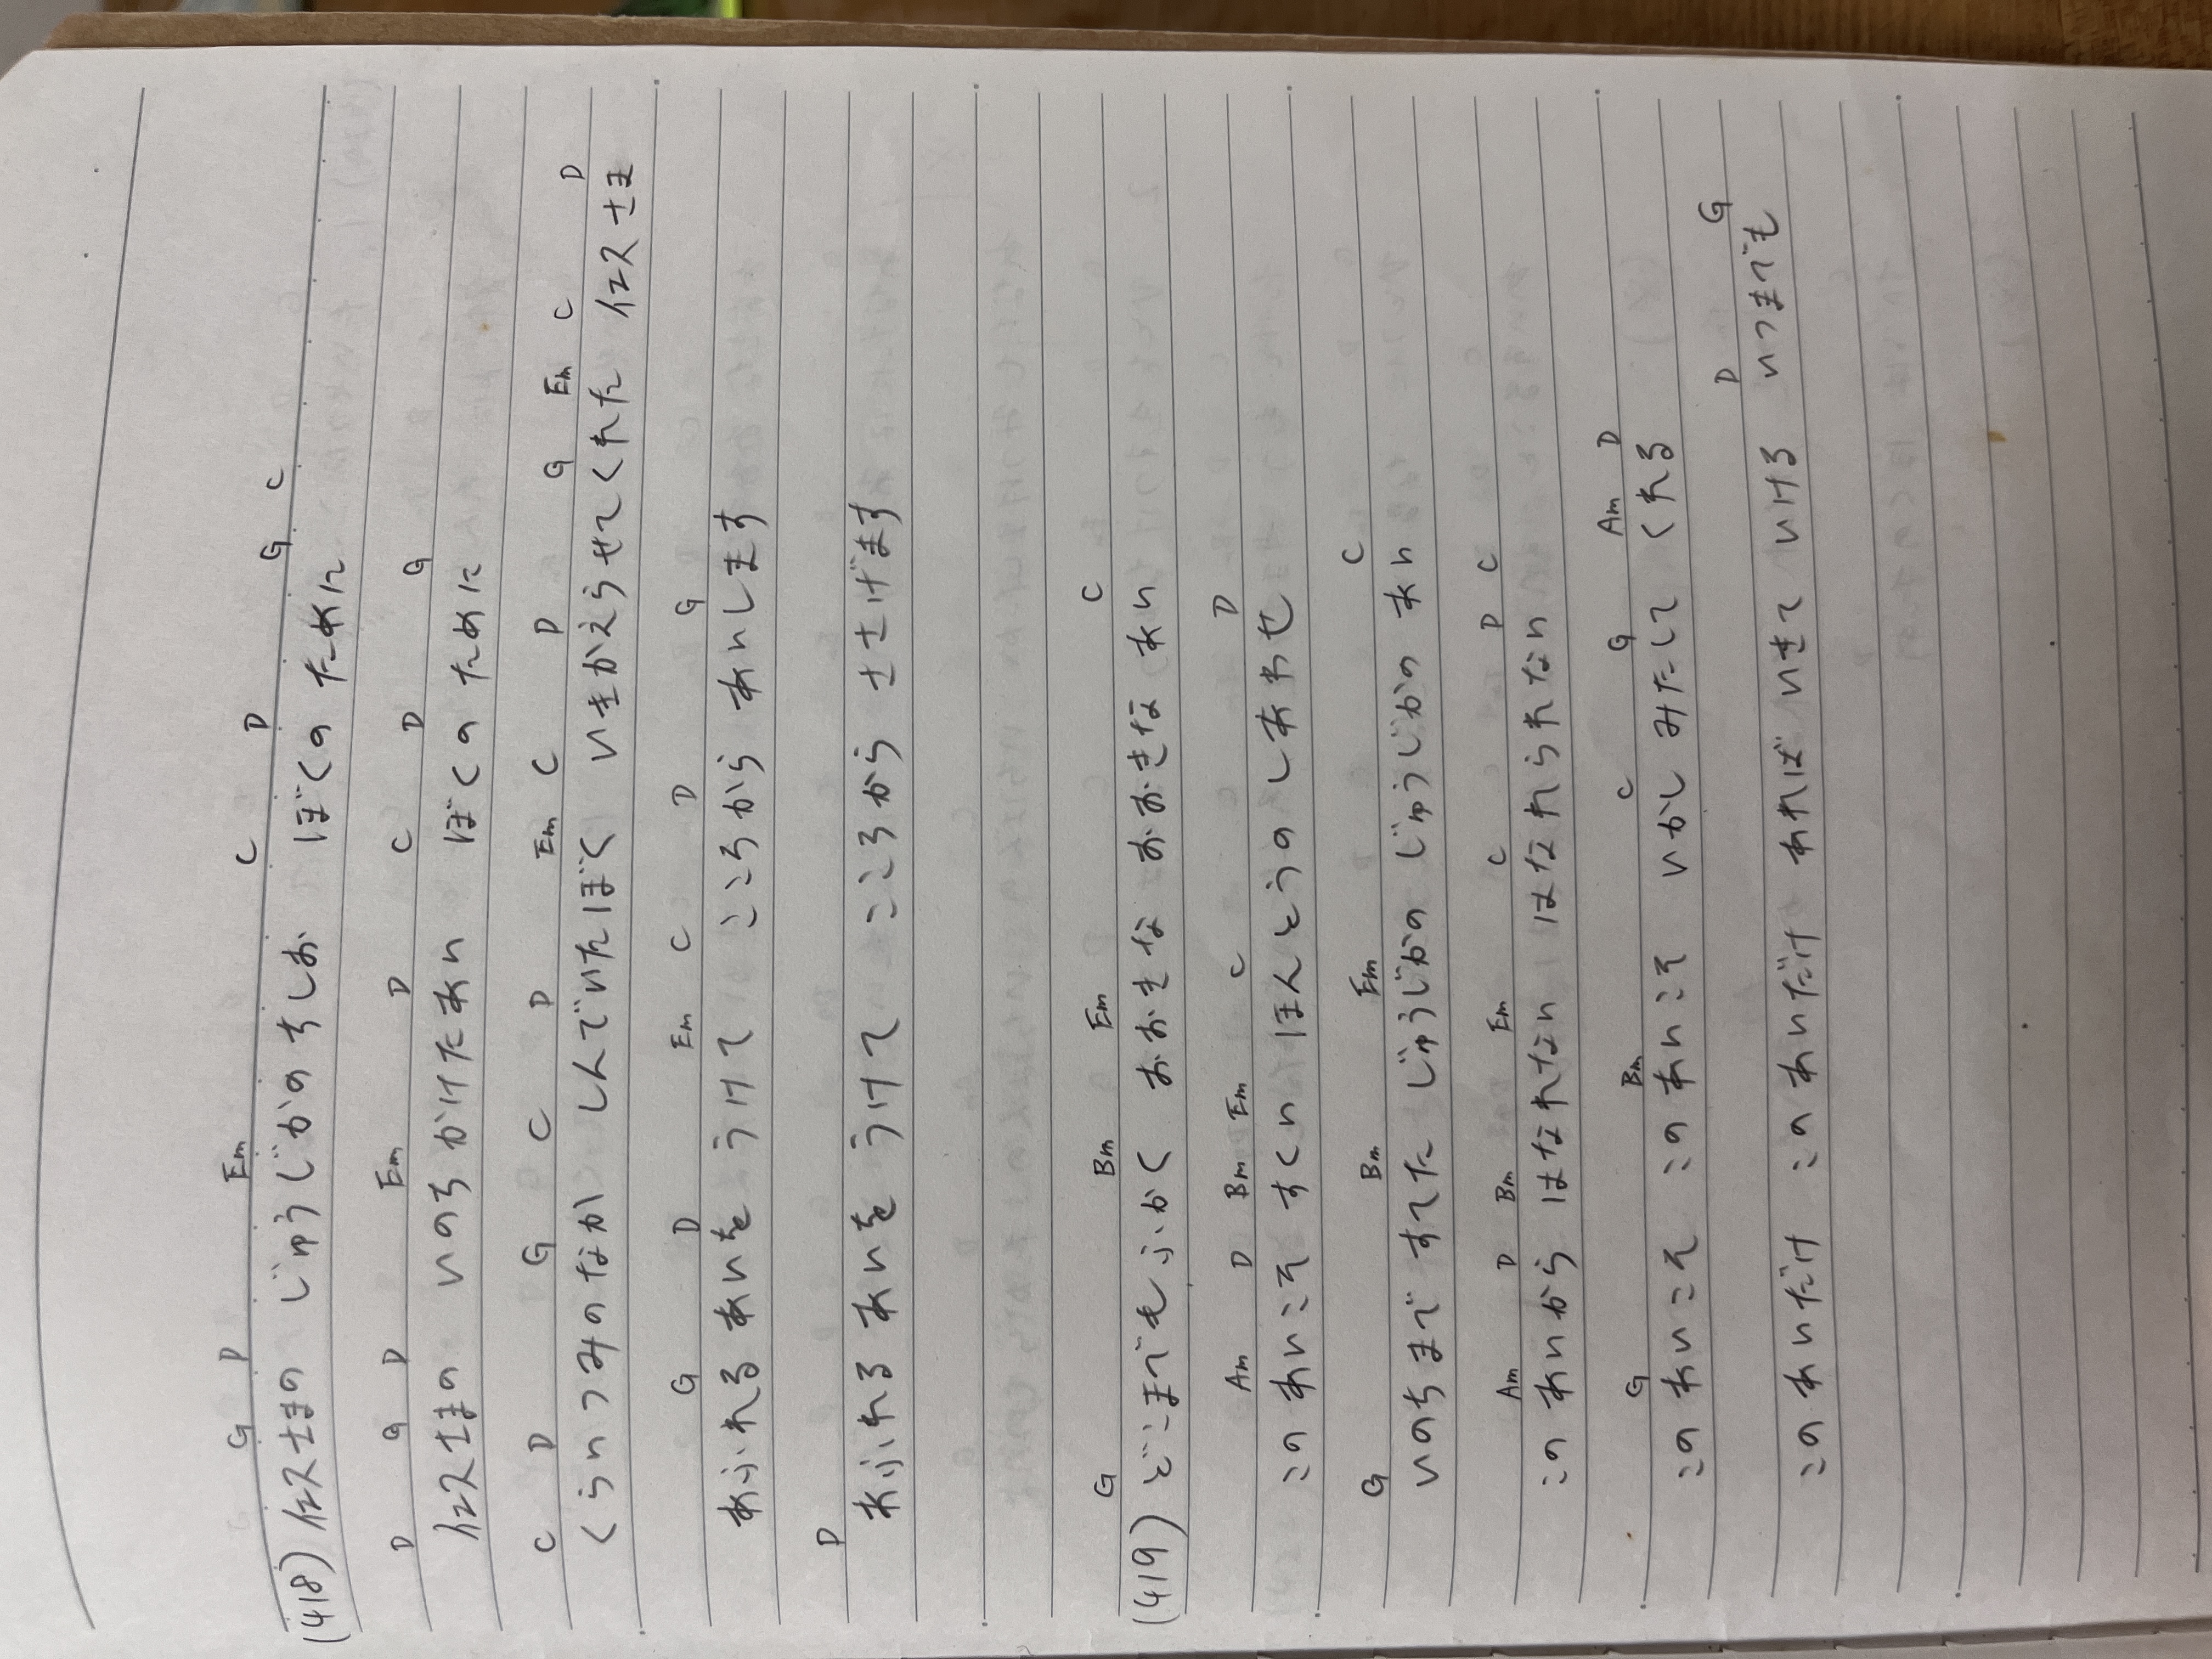 G D Em C D G C
(418) イエスさまの じゅうじかのちしお ぼくの ために
D G D Em D C D G
イエスさまの いのちがけたあい ぼくの ために
C D G C D Em C D G Em C D
くらいつみのなか しんでいたぼく いきかえらせてくれた イエスさま
G D Em C D G
あふれる あいを うけて こころから あいします
D
あふれる あいを うけて こころから ささげます
G Bm Em C
(419) どこまでもふかく おおきな おおきな あい
Am D Bm Em C D
この あいこそ すくい ほんとうの しあわせ
G Bm Em C
いのちまで すてた じゅうじかの じゅうじかの あい
Am D Bm Em C D C
この あいから はなれない はなれられない
G Bm C G Am D
この あいこそ この あいこそ いかし みたして くれる
D G
この あいだけ この あいだけ あれば いきて いける いつまでも